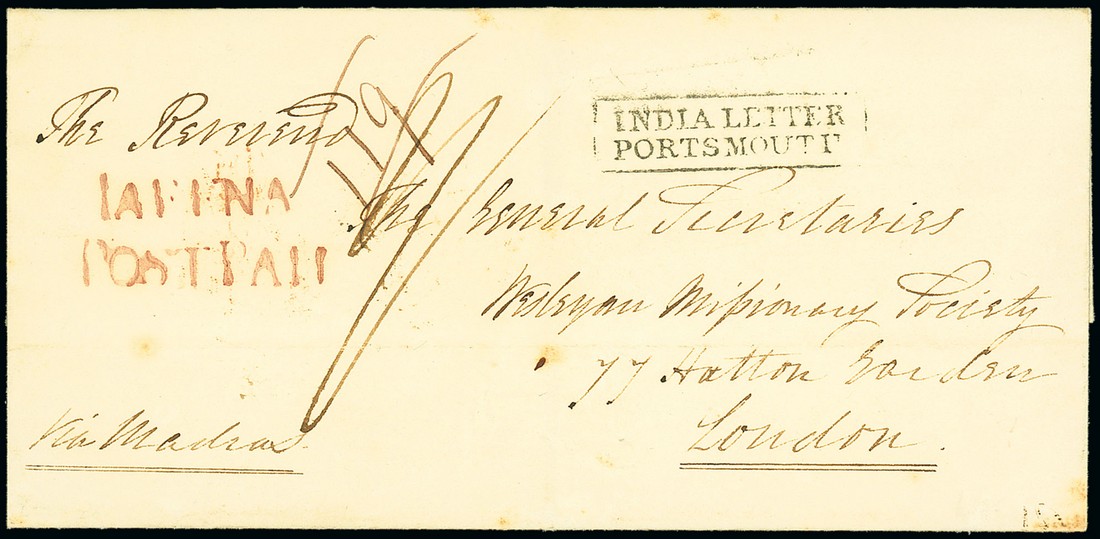 The Reverend
1/9
INDIA LETTER
PORTSMOUTH
JAFFNA
POST PAID
The General Secretaries
Wesleyan Missionary Society
77 Hatton Garden
London.
Via Madras